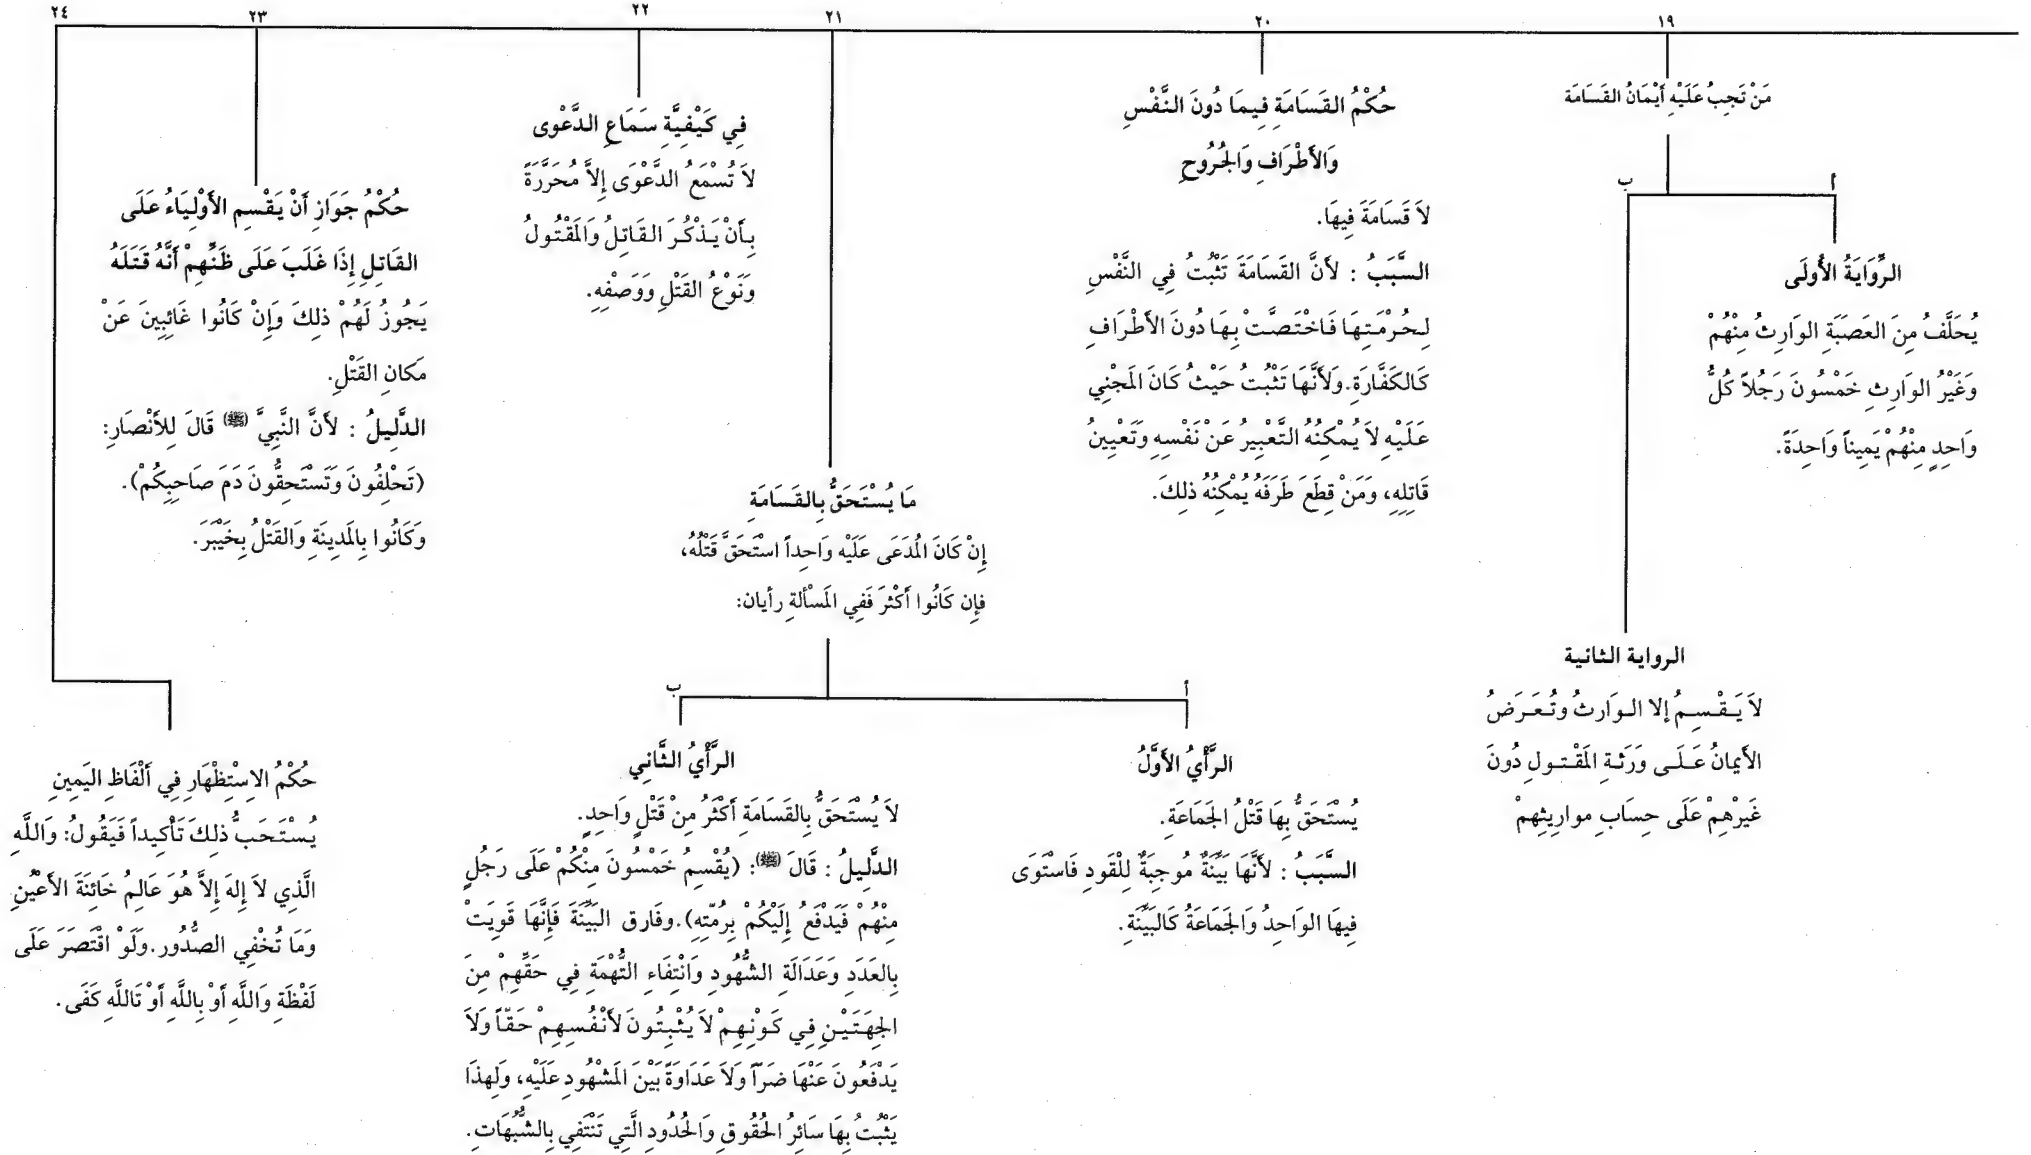 ١٩
مَنْ تَجِبُ عَلَيْهِ أَيْمَانُ القَسَامَة
أ
الرِّوَايَةُ الأُولَى
يُحَلَّفُ مِنَ العَصَبَةِ الوَارِثُ مِنْهُمْ
وَغَيْرُ الوَارِثِ خَمْسُونَ رَجُلاً كُلُّ
وَاحِدٍ مِنْهُمْ يَمِيناً وَاحِدَةً.
ب
الرواية الثانية
لاَ يَـقْـسِـمُ إلا الـوَارِثُ وتُـعَـرَضُ
الأَيمانُ عَـلَـى وَرَثـةِ المَقْتـولِ دُونَ
غَيْرِهِمْ عَلَى حِسَابِ مواريثِهِمْ
٢٠
حُكْمُ القَسَامَةِ فِيمَا دُونَ النَّفْسِ
وَالأَطْرَافِ وَالجُرُوحِ
لاَ قَسَامَةَ فِيهَا.
السَّبَبُ : لأَنَّ القَسَامَةَ تَثْبُتُ فِي النَّفْسِ
لِـحُـرْمَـتِـهَا فَاخْتَصَّتْ بِـهَا دُونَ الأَطْرَافِ
كَالكَفَّارَةِ.وَلأَنَّهَا تَثْبُتُ حَيْثُ كَانَ المَجْنِي
عَلَيْهِ لاَ يُمْكِنُهُ التَّعْبِيرُ عَنْ نَفْسِهِ وَتَعْيِينُ
قَاتِلِهِ، وَمَنْ قِطَعَ طَرَفَهُ يُمْكِنُهُ ذلِكَ.
٢١
مَا يُسْتَحَقُّ بِالقَسَامَةِ
إِنْ كَانَ المُدَعَى عَلَيْه وَاحِداً استْحَقَّ قَتْلُهُ،
فإِن كَانُوا أَكْثرَ فَفِي المَسْألةِ رأيان:
أ
الرَّأْيُ الأَوَّلُ
يُسْتَحَقُّ بِهَا قَتْلُ الجَمَاعَةِ.
السَّبَبُ : لأَنَّهَا بَيِّنَةٌ مُوجِبَةٌ لِلْقَودِ فَاسْتَوَى
فِيهَا الوَاحِدُ وَالجَمَاعَةُ كَالبَيِّنَةِ.
ب
الرَّأْيُ الثَّانِي
لاَ يُسْتَحَقُّ بِالقَسَامَةِ أَكْثَرُ مِنْ قَتْلِ وَاحِدٍ.
الدَّلِيلُ : قَالَ (ﷺ): (يُقْسِمُ خَمْسُونَ مِنْكُمْ عَلَى رَجُلٍ
مِنْهُمْ فَيَدْفَعُ إِلَيْكُمْ بِرُمّتِهِ).وفَارق البَيِّنَةَ فَإِنَّهَا قَوِيَتْ
بِالعَدَدِ وَعَدَالَةِ الشُّهُودِ وَانْتِفَاءِ التُّهْمَةِ فِي حَقِّهِمْ مِنَ
الجِهَتَيْنِ فِي كَوْنِهِمْ لاَ يُثْبِتُونَ لأَنْفُسِهِمْ حَقّاً وَلاَ
يَدْفَعُونَ عَنْهَا ضَرَاً وَلاَ عَدَاوَةً بَيْنَ المَشْهُودِ عَلَيْهِ، وَلِهذَا
يَثْبُتُ بِهَا سَائِرُ الحُقُوقِ وَالحُدُودِ الَّتِي تَنْتَفِي بِالشُّبُهَاتِ.
٢٢
فِي كَيْفِيَّةِ سَمَاعِ الدَّعْوى
لاَ تُسْمَعُ الدَّعْوَى إِلاَّ مُحَرَّرَةً
بِـأَنْ يَـذْكُـرَ القَاتِلُ وَالمَقْتُـولُ
وَنَوْعُ القَتْلِ وَوَصْفِهِ.
٢٣
حُكْمُ جَوَازِ أَنْ يَقْسِمِ الأَوْلِيَاءُ عَلَى
القَاتِلِ إِذَا غَلَبَ عَلَى ظَنِّهِمْ أَنَّهُ قَتَلَهُ
يَجُوزُ لَهُمْ ذلِكَ وَإِنْ كَانُوا غَائِبِينَ عَنْ
مَكانِ القَتْلِ.
الدَّلِيلُ : لأَنَّ النَّبِيَّ (ﷺ) قَالَ لِلأَنْصَارِ:
(تَحْلِفُونَ وَتَسْتَحِقُّونَ دَمَ صَاحِبِكُمْ).
وَكَانُوا بِالمَدِينَةِ وَالقَتْلُ بِخَيْبَرَ.
٢٤
حُكْمُ الاِسْتِظْهَارِ فِي أَلْفَاظِ اليَمِينِ
يُسْتَحَبُّ ذلِكَ تَأْكِيداً فَيَقُولُ: وَاللَّهِ
الَّذِي لاَ إِلهَ إِلاَّ هُوَ عَالِمُ خَائِنَةَ الأَعْيُنِ
وَمَا تُخْفِي الصُّدُور.وَلَوْ اقْتَصَرَ عَلَى
لَفْظَةِ وَاللَّهِ أَوْ بِاللَّهِ أَوْ تَاللَّهِ كَفَى.